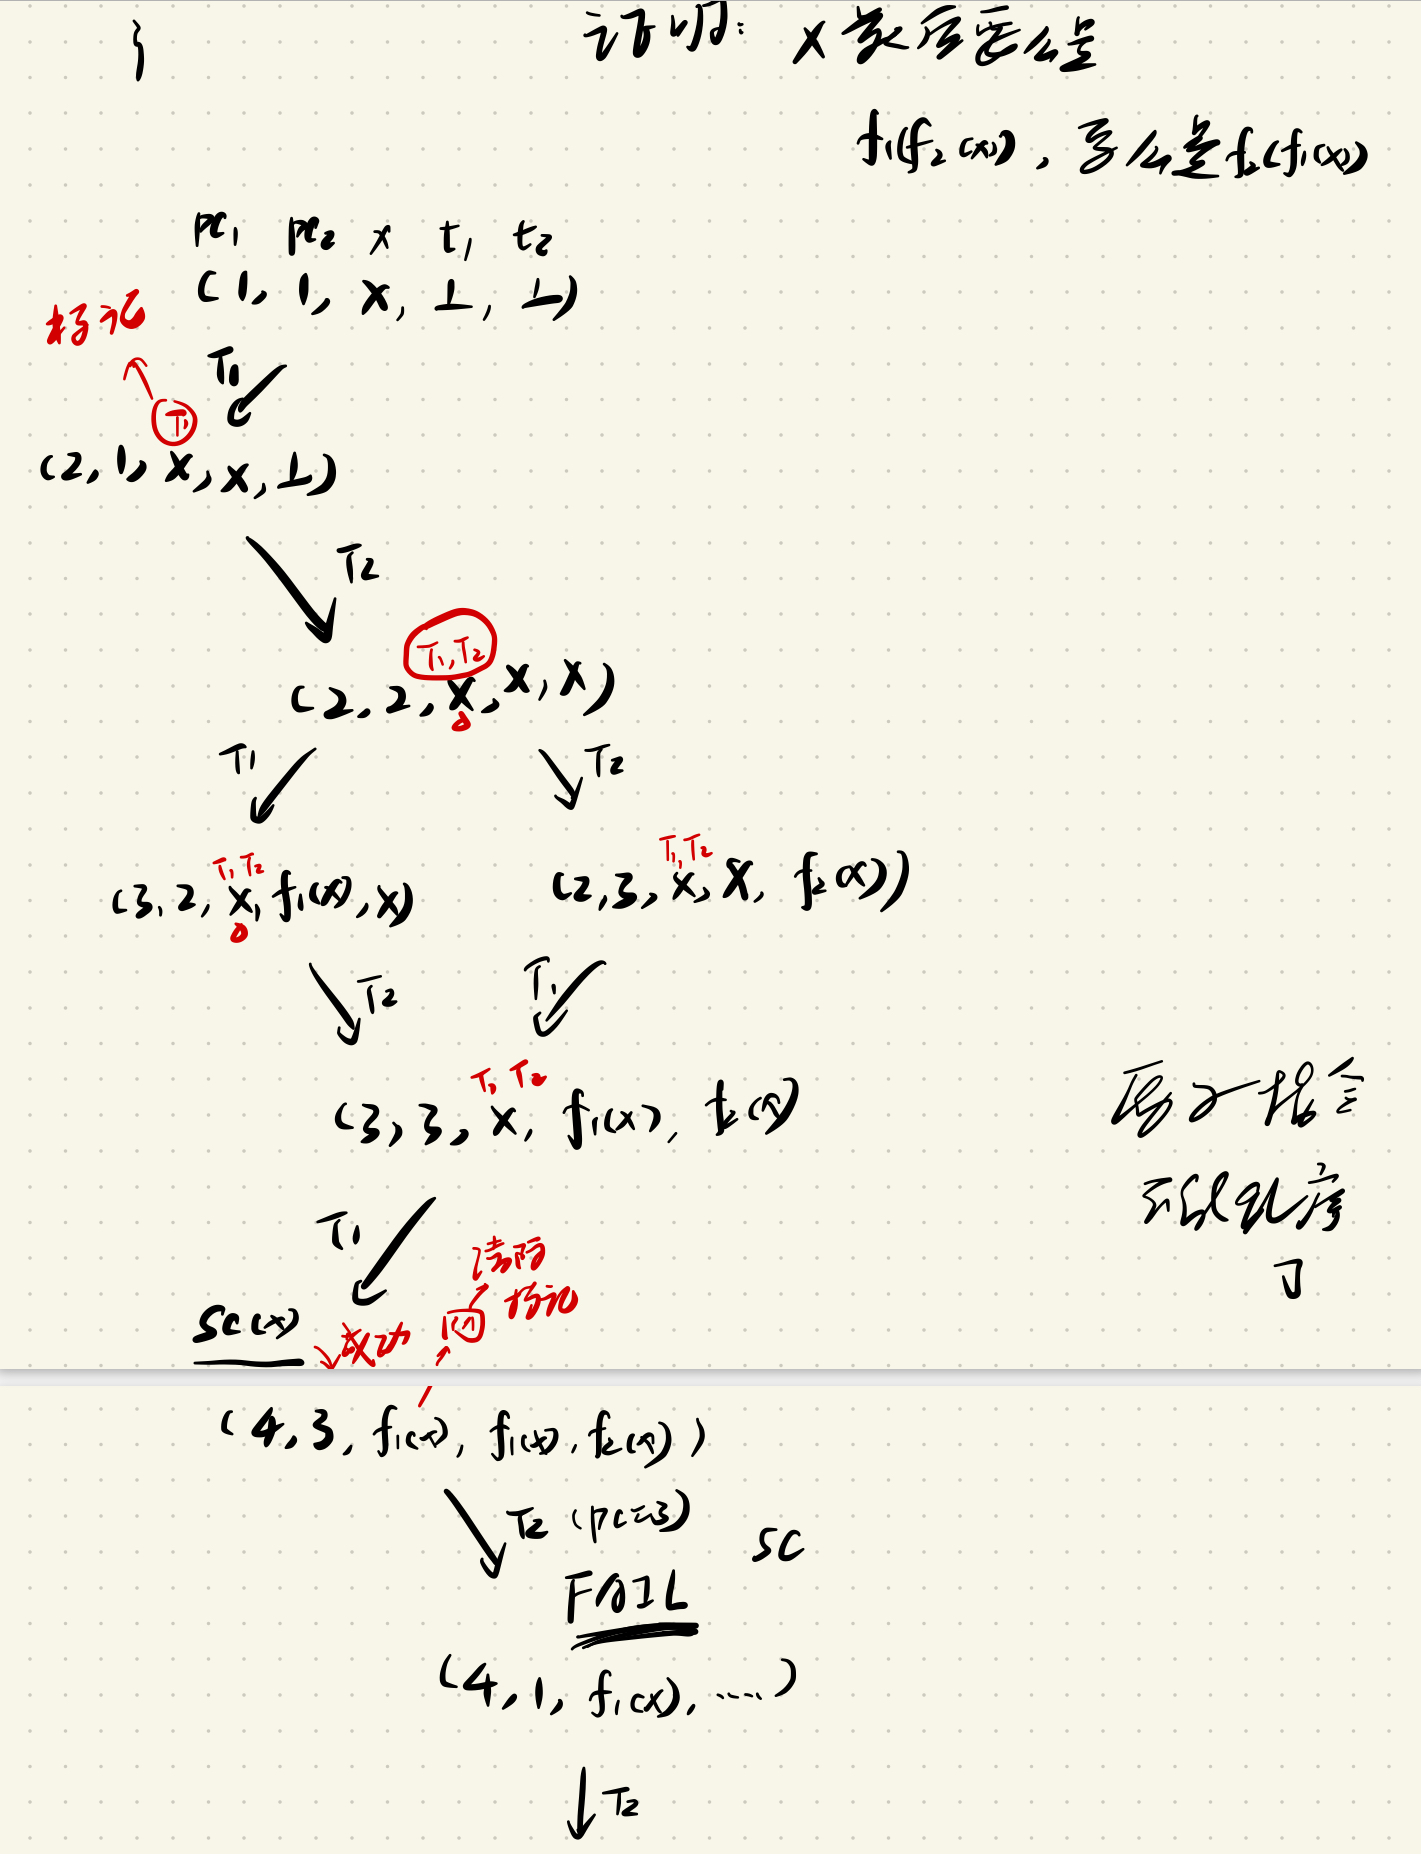 }
证明: x最后要么是
f₁(f₂(x)), 要么是f₂(f₁(x))
pc₁ pc₂ x t₁ t₂
(1, 1, x, ⊥, ⊥)
标记
T₁
T₁
(2, 1, x, x, ⊥)
T₂
T₁, T₂
(2, 2, x, x, x)
T₁ T₂
T₁, T₂
(3, 2, x, f₁(x), x)
T₁, T₂
(2, 3, x, x, f₂(x))
T₂ T₁
T₁ T₂
(3, 3, x, f₁(x), f₂(x))
原子指令
乱序
了
T₁
清除
标记
SC(x)
成功
(4, 3, f₁(x), f₁(x), f₂(x))
T₂ (pc=3) SC
FAIL
(4, 1, f₁(x), ....)
T₂